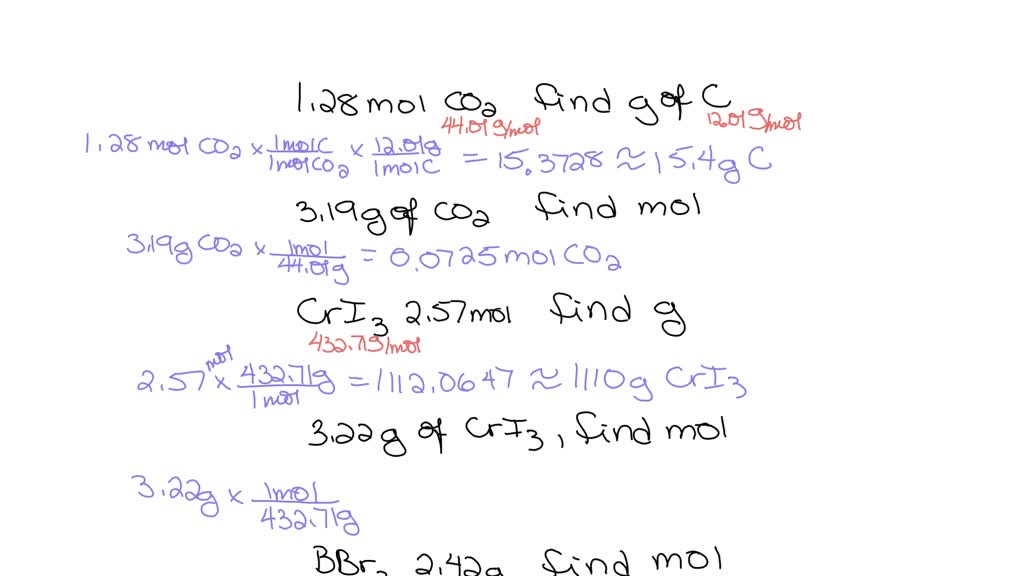 1.28 mol CO₂ find g of C
44.01g/mol 12.01g/mol
1.28 mol CO₂ × 1molC/1molCO₂ × 12.01g/1molC = 15.3728 ≈ 15.4g C
3.19g of CO₂ find mol
3.19g CO₂ × 1mol/44.01g = 0.0725 mol CO₂
CrI₃ 2.57mol find g
432.71g/mol
2.57 mol × 432.71g/1mol = 1112.0647 ≈ 1110g CrI₃
3.22g of CrI₃, find mol
3.22g × 1mol/432.71g
BBr₃ 2.42g find mol